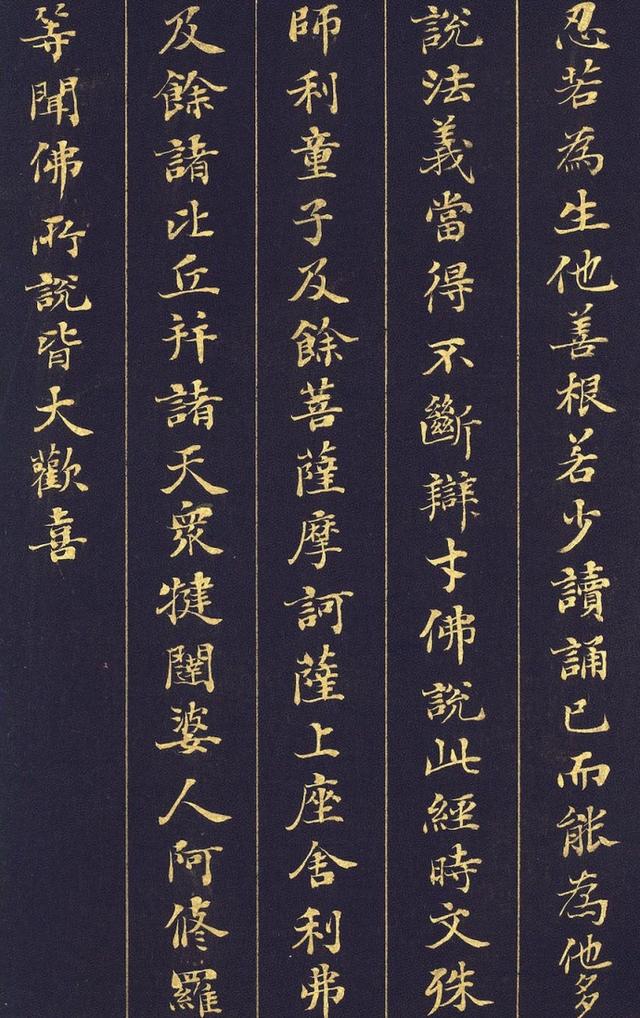 忍若為生他善根若少讀誦已而能為他多
說法義當得不斷辯才佛說此經時文殊
師利童子及餘菩薩摩訶薩上座舍利弗
及餘諸比丘并諸天眾犍闥婆人阿修羅
等聞佛所說皆大歡喜